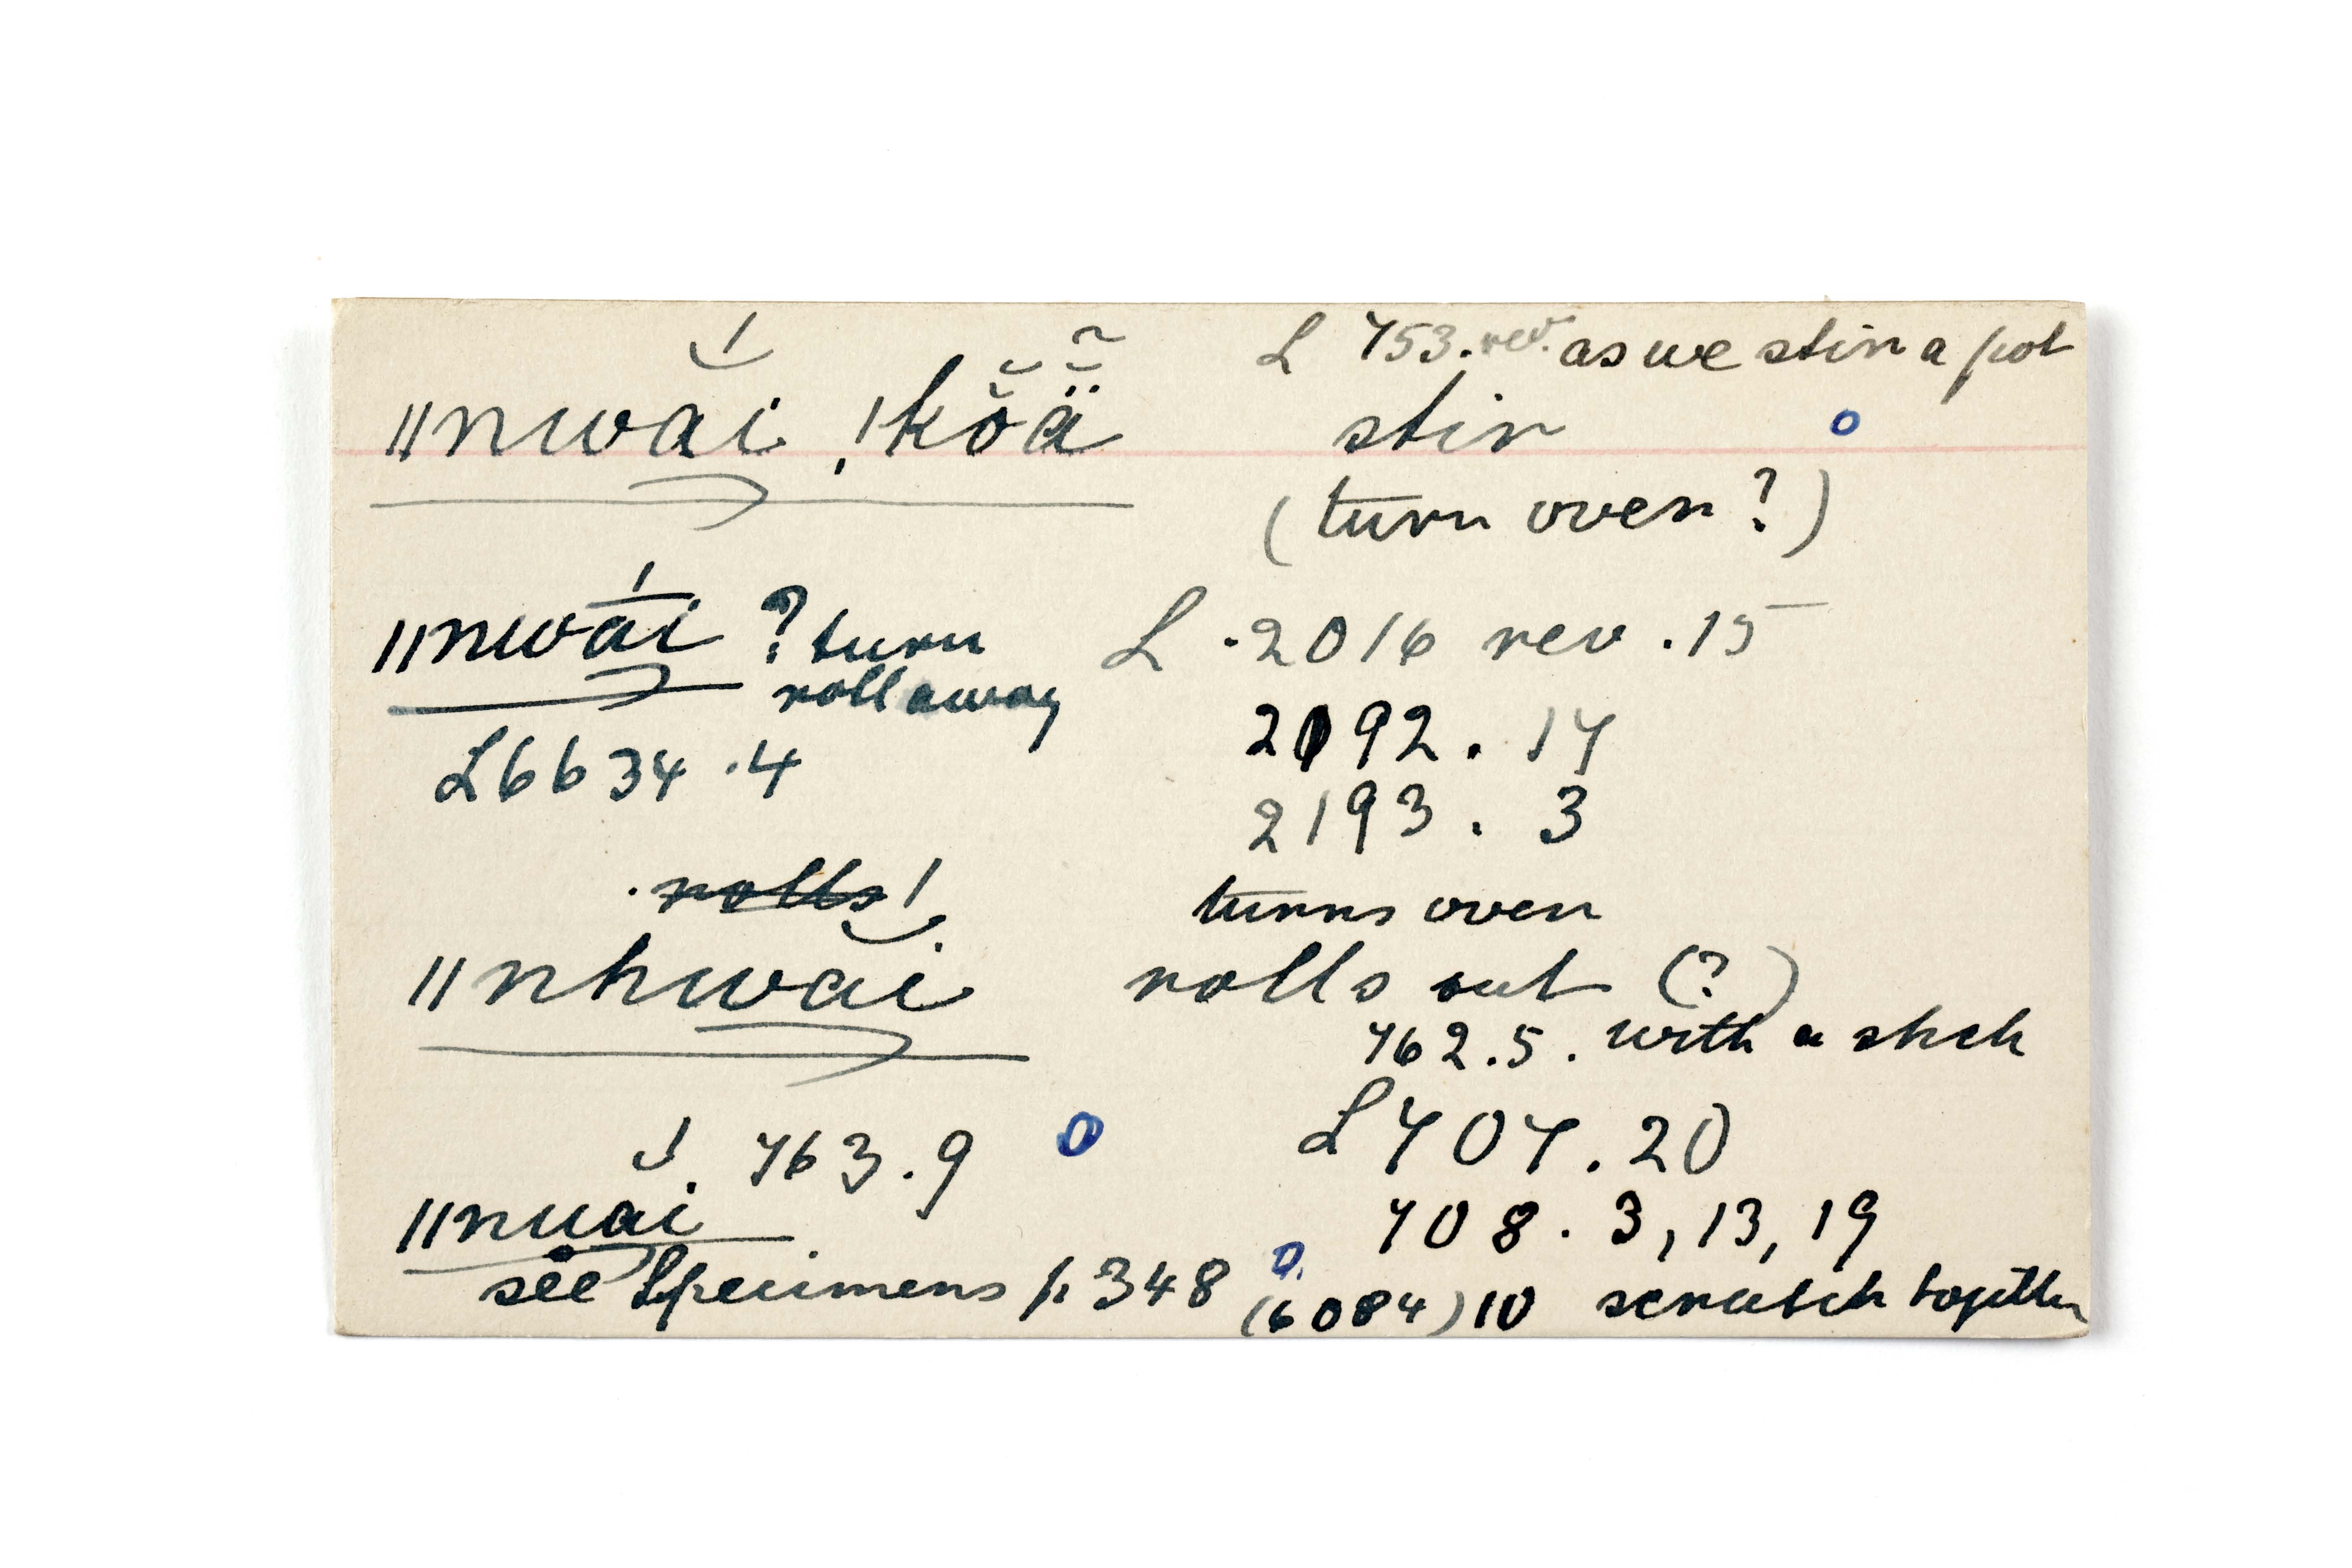 L 753. rev. as we stir a pot
ǁnwai, !kŏä stir
(turn over?)
ǁnwai ? turn L. 2016 rev. 15
roll away
L 6634.4 2092. 17
2193. 3
rolls turns over
ǁnhwai rolls out (?)
762.5. with a stick
763.9 L 707.20
ǁnuai 708. 3, 13, 19
see Specimens p. 348 (6084) 10 scratch together